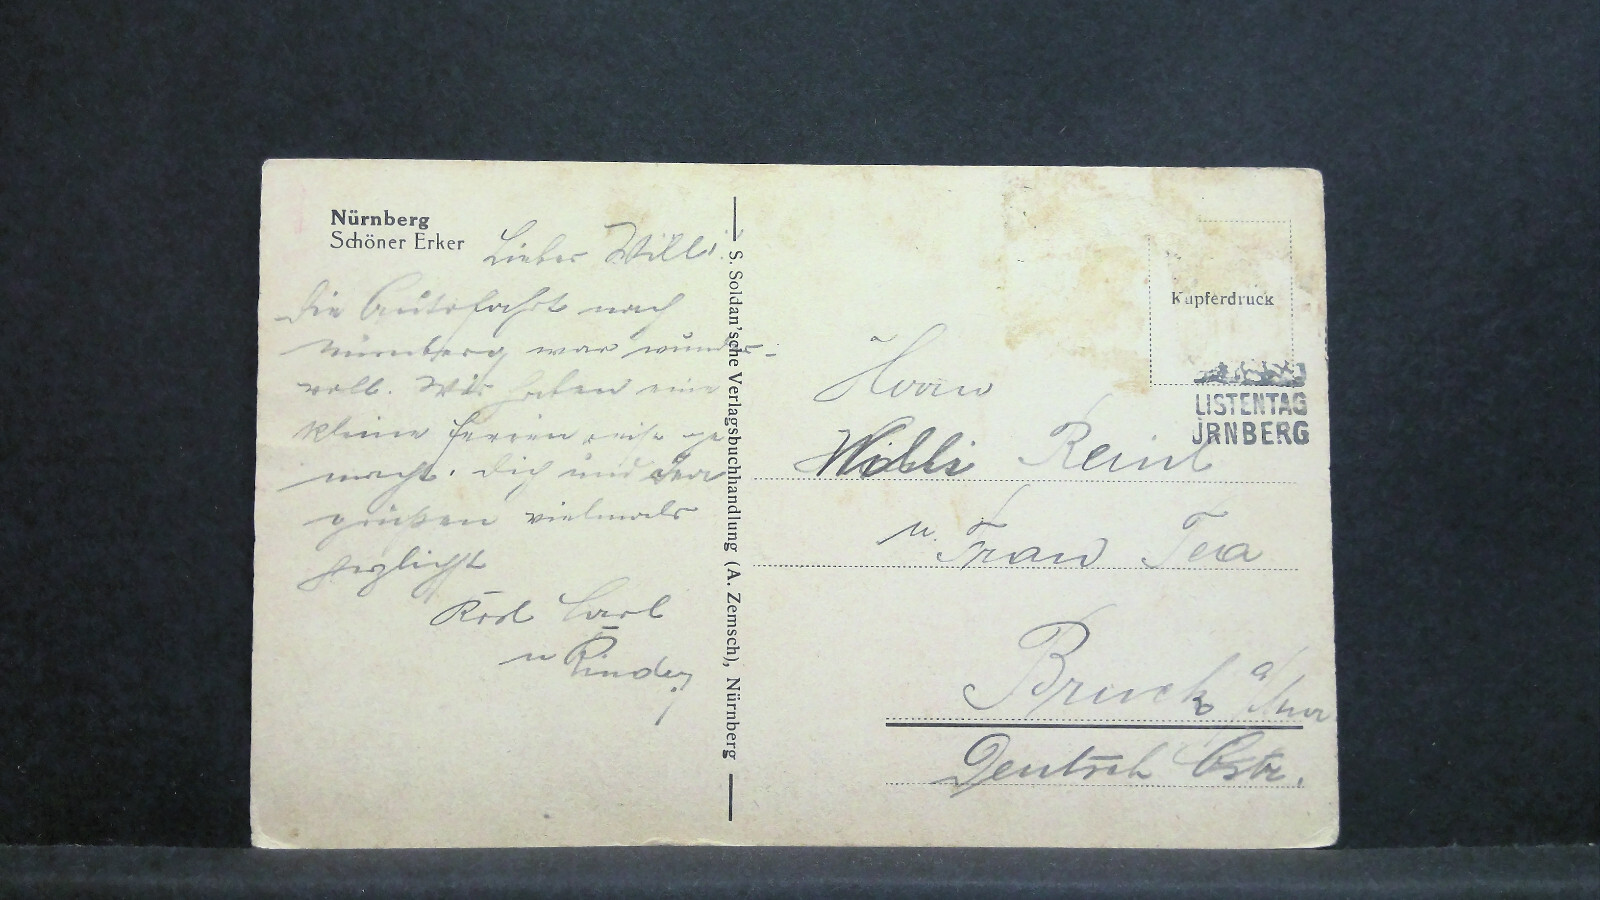 Nürnberg
Schöner Erker
Lieber Willi!
Die Autofahrt nach
Nürnberg war wunder-
voll. Wir haben eine
kleine Ferienreise ge
macht. Dich und Tea
grüßen vielmals
herzlichst
Carl
u Kinder
S. Soldan'sche Verlagsbuchhandlung (A. Zemsch), Nürnberg
Kupferdruck
LISTENTAG
ÜRNBERG
Herrn
Willi Reinl
u. Frau Tea
Bruck a/
Deutsch Östr.